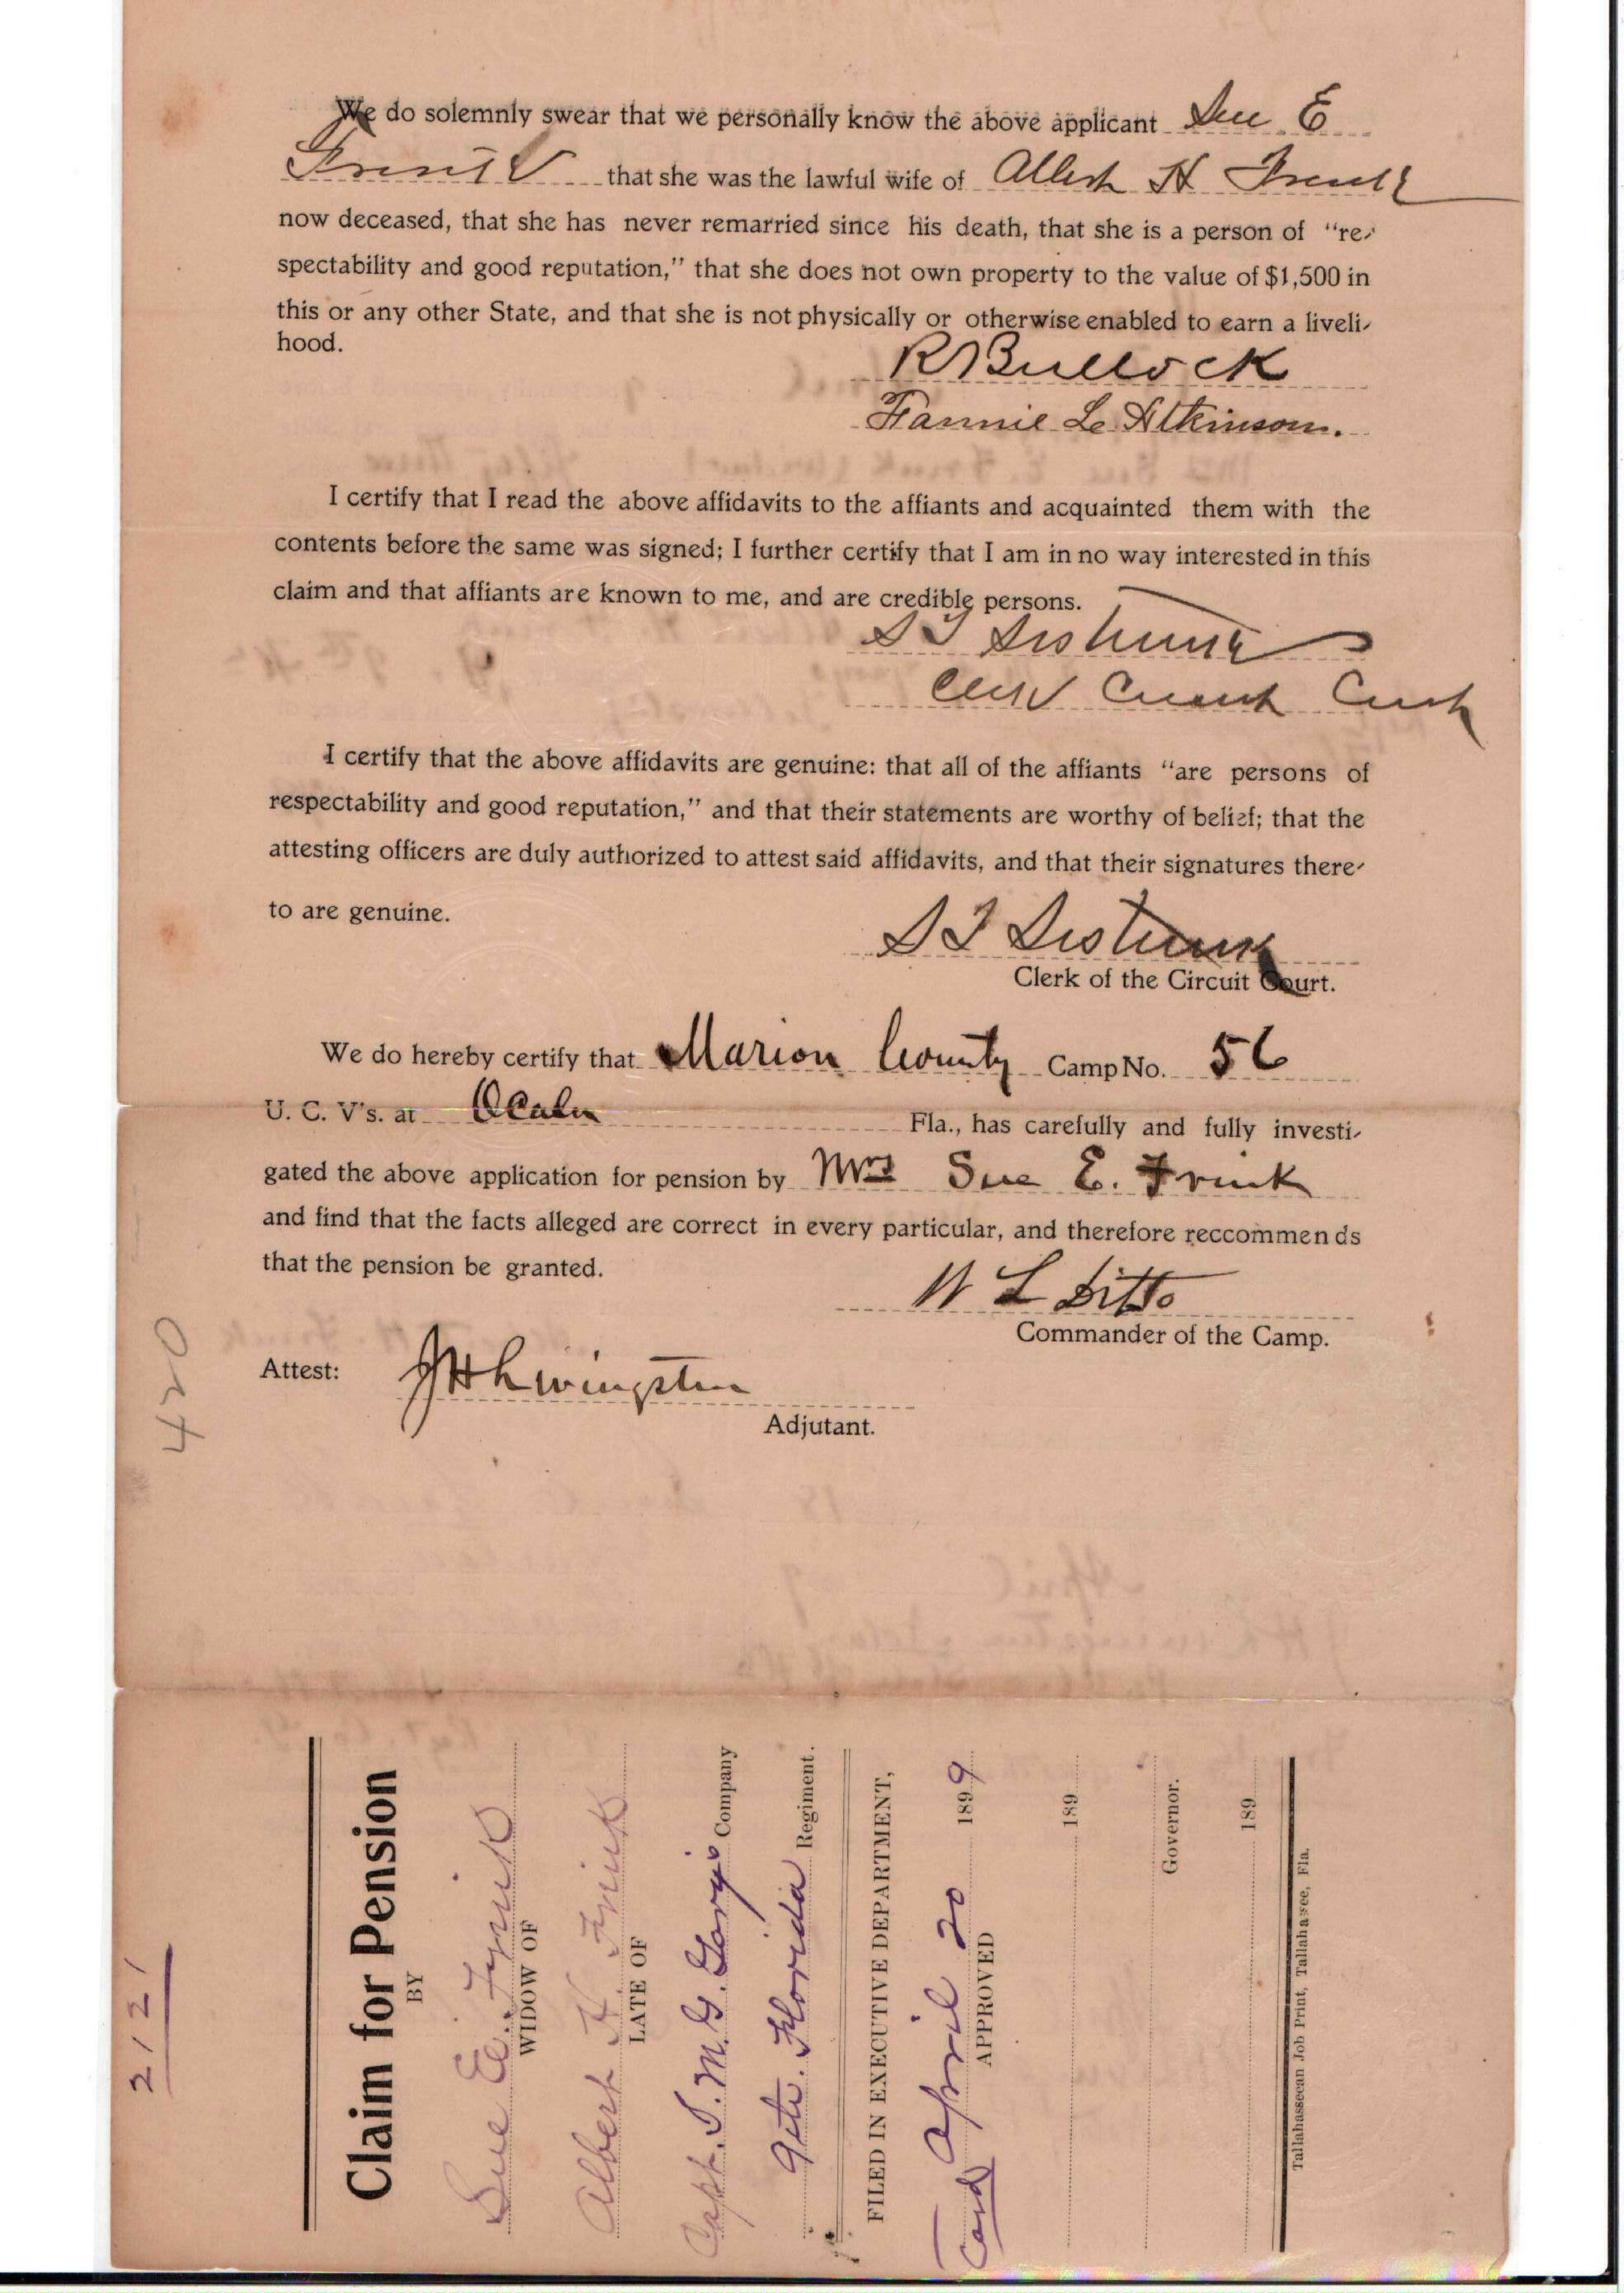 We do solemnly swear that we personally know the above applicant Sue E
Frink that she was the lawful wife of Albert H Frink
now deceased, that she has never remarried since his death, that she is a person of "re-
spectability and good reputation," that she does not own property to the value of $1,500 in
this or any other State, and that she is not physically or otherwise enabled to earn a liveli-
hood.
R Bullock
Fannie L. Atkinson.
I certify that I read the above affidavits to the affiants and acquainted them with the
contents before the same was signed; I further certify that I am in no way interested in this
claim and that affiants are known to me, and are credible persons.
S T Sistrunk
Clerk Circuit Court
I certify that the above affidavits are genuine: that all of the affiants "are persons of
respectability and good reputation," and that their statements are worthy of belief; that the
attesting officers are duly authorized to attest said affidavits, and that their signatures there-
to are genuine.
S T Sistrunk
Clerk of the Circuit Court.
We do hereby certify that Marion County Camp No. 56
U. C. V's. at Ocala Fla., has carefully and fully investi-
gated the above application for pension by Mrs Sue E. Frink
and find that the facts alleged are correct in every particular, and therefore reccommends
that the pension be granted.
W L Ditto
Commander of the Camp.
Attest: J H Livingston
Adjutant.
420
2121
Claim for Pension
BY
Sue E. Frink
WIDOW OF
Albert H Frink
LATE OF
Capt. S. M. G. Gary's Company
9th. Florida Regiment.
FILED IN EXECUTIVE DEPARTMENT,
April 20 1899
APPROVED
Card
189
Governor.
189
Tallahasseean Job Print, Tallahasee, Fla.